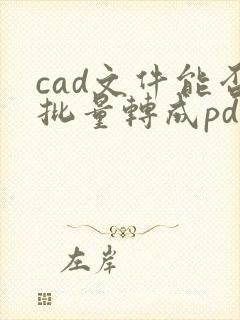 cad文件能否
批量轉成pd
左岸